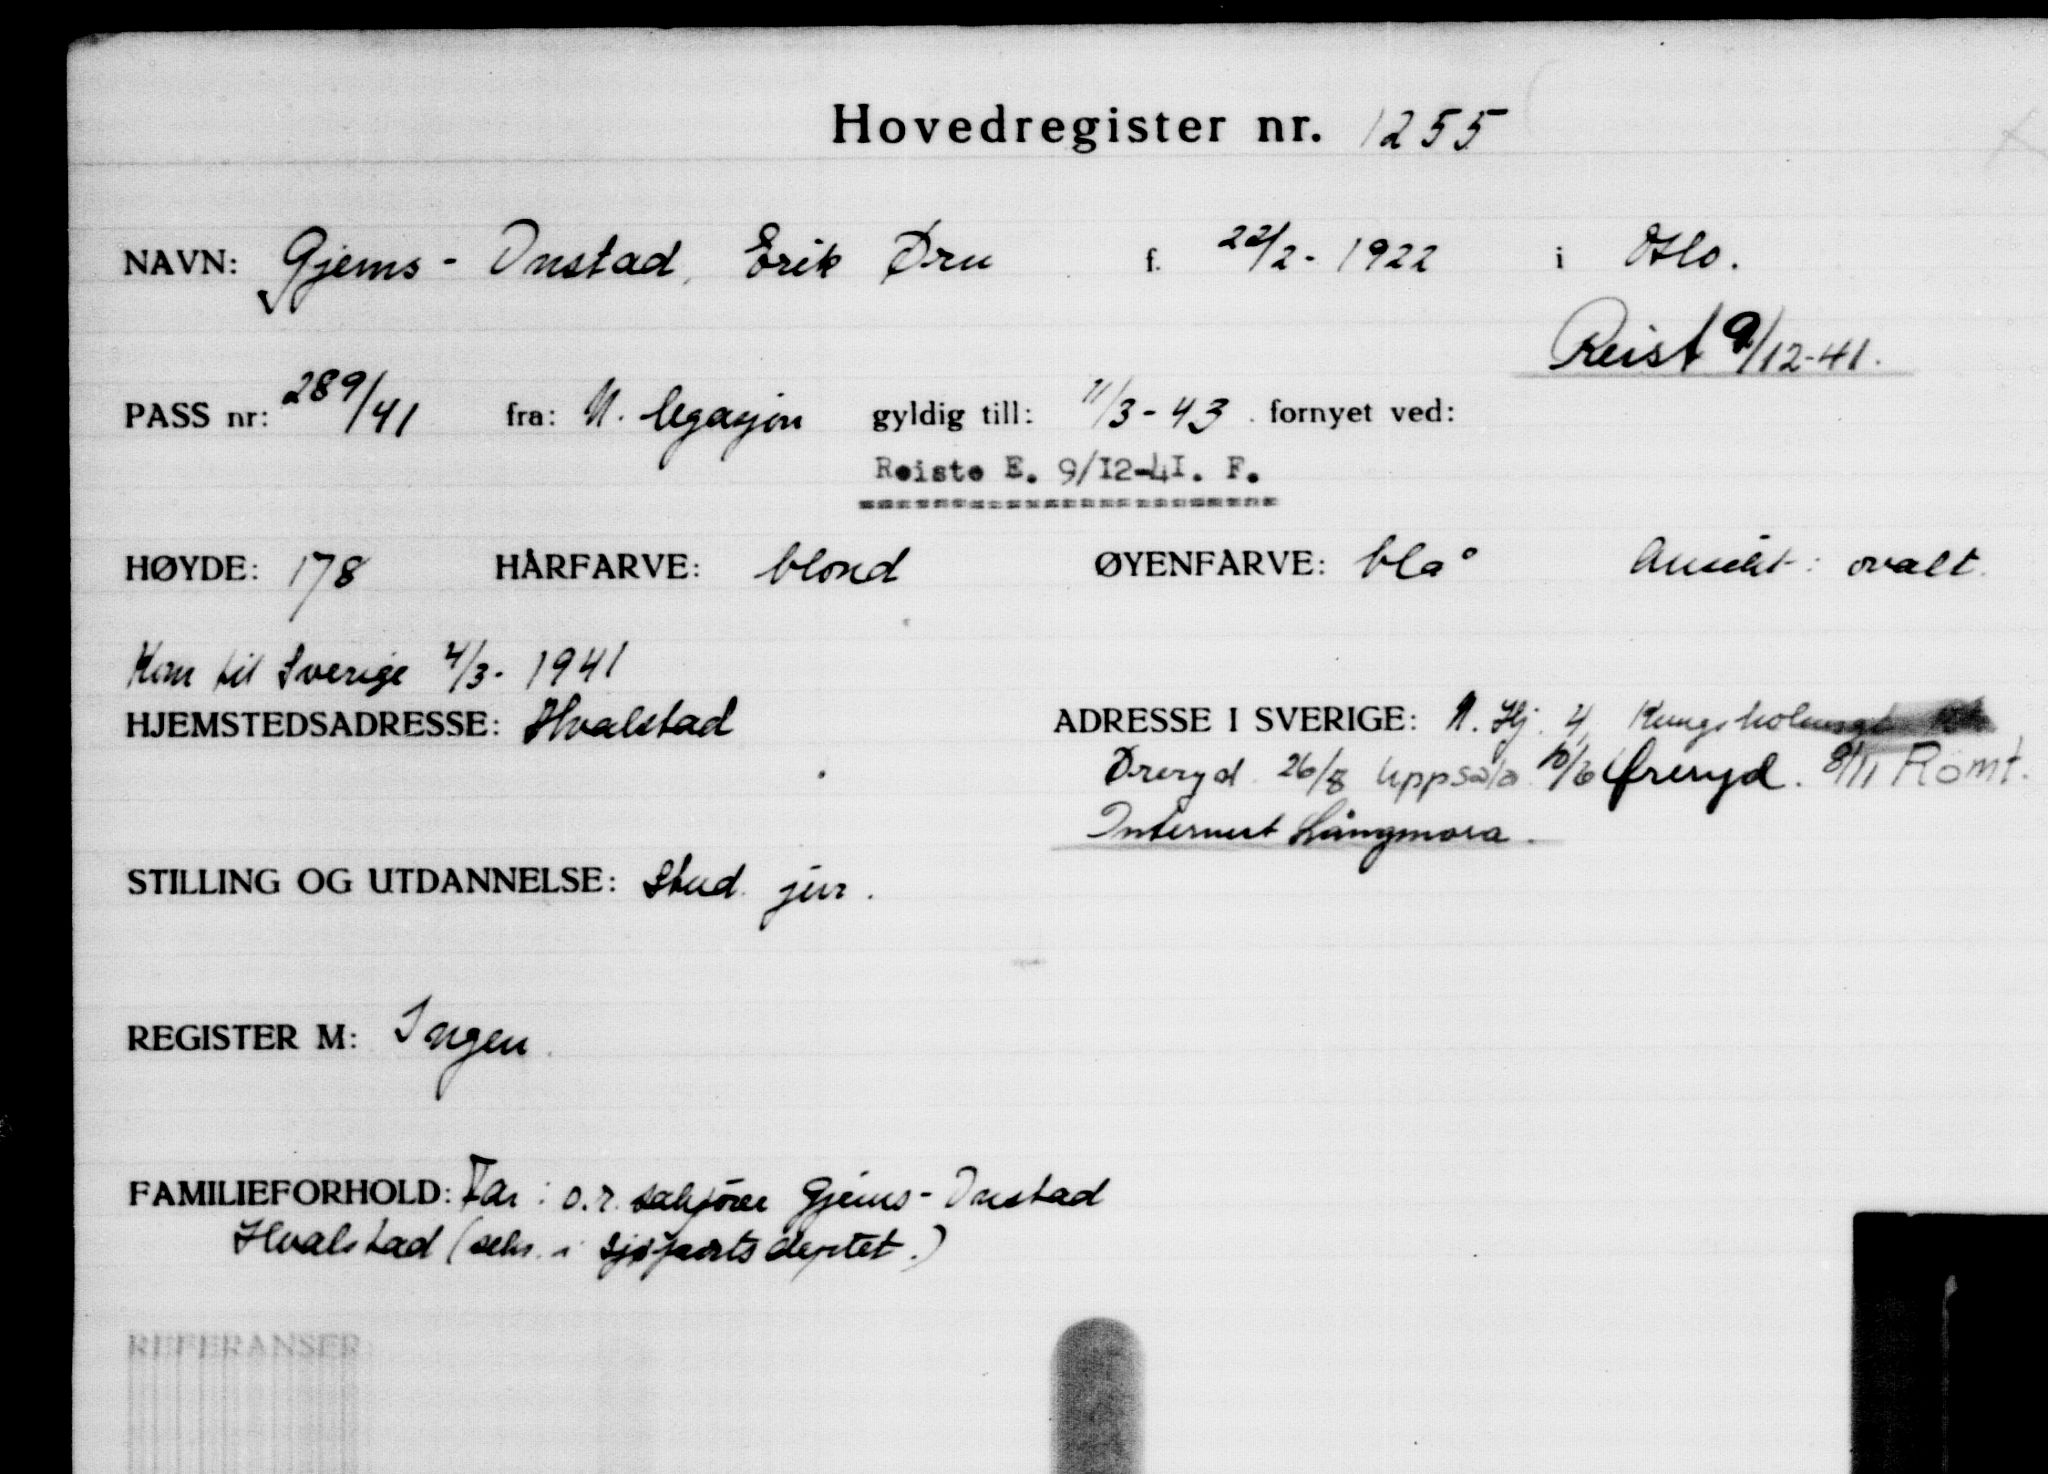 Hovedregister nr. 1255
NAVN: Gjems - Onstad, Erik Ørn f. 22/2 - 1922 i Oslo.
Reist 9/12-41.
PASS nr: 289/41 fra: N. legasjon gyldig till: 11/3 - 43 fornyet ved:
Reiste E. 9/I2-4I. F.
HØYDE: 178 HÅRFARVE: blond ØYENFARVE: blå Ansikt: ovalt.
Kom til Sverige 4/3 - 1941
HJEMSTEDSADRESSE: Hvalstad ADRESSE I SVERIGE: N. Hj. 4, Kungsholmsgt
Øreryd 26/8 Uppsala 10/6 Øreryd. 8/11 Römt.
Internert Långmora.
STILLING OG UTDANNELSE: Stud. jur.
REGISTER M: Ingen.
FAMILIEFORHOLD: Far: o.r. sakfører Gjems-Onstad
Hvalstad (sekr. i sjøfartsdeptet.)
REFERANSER